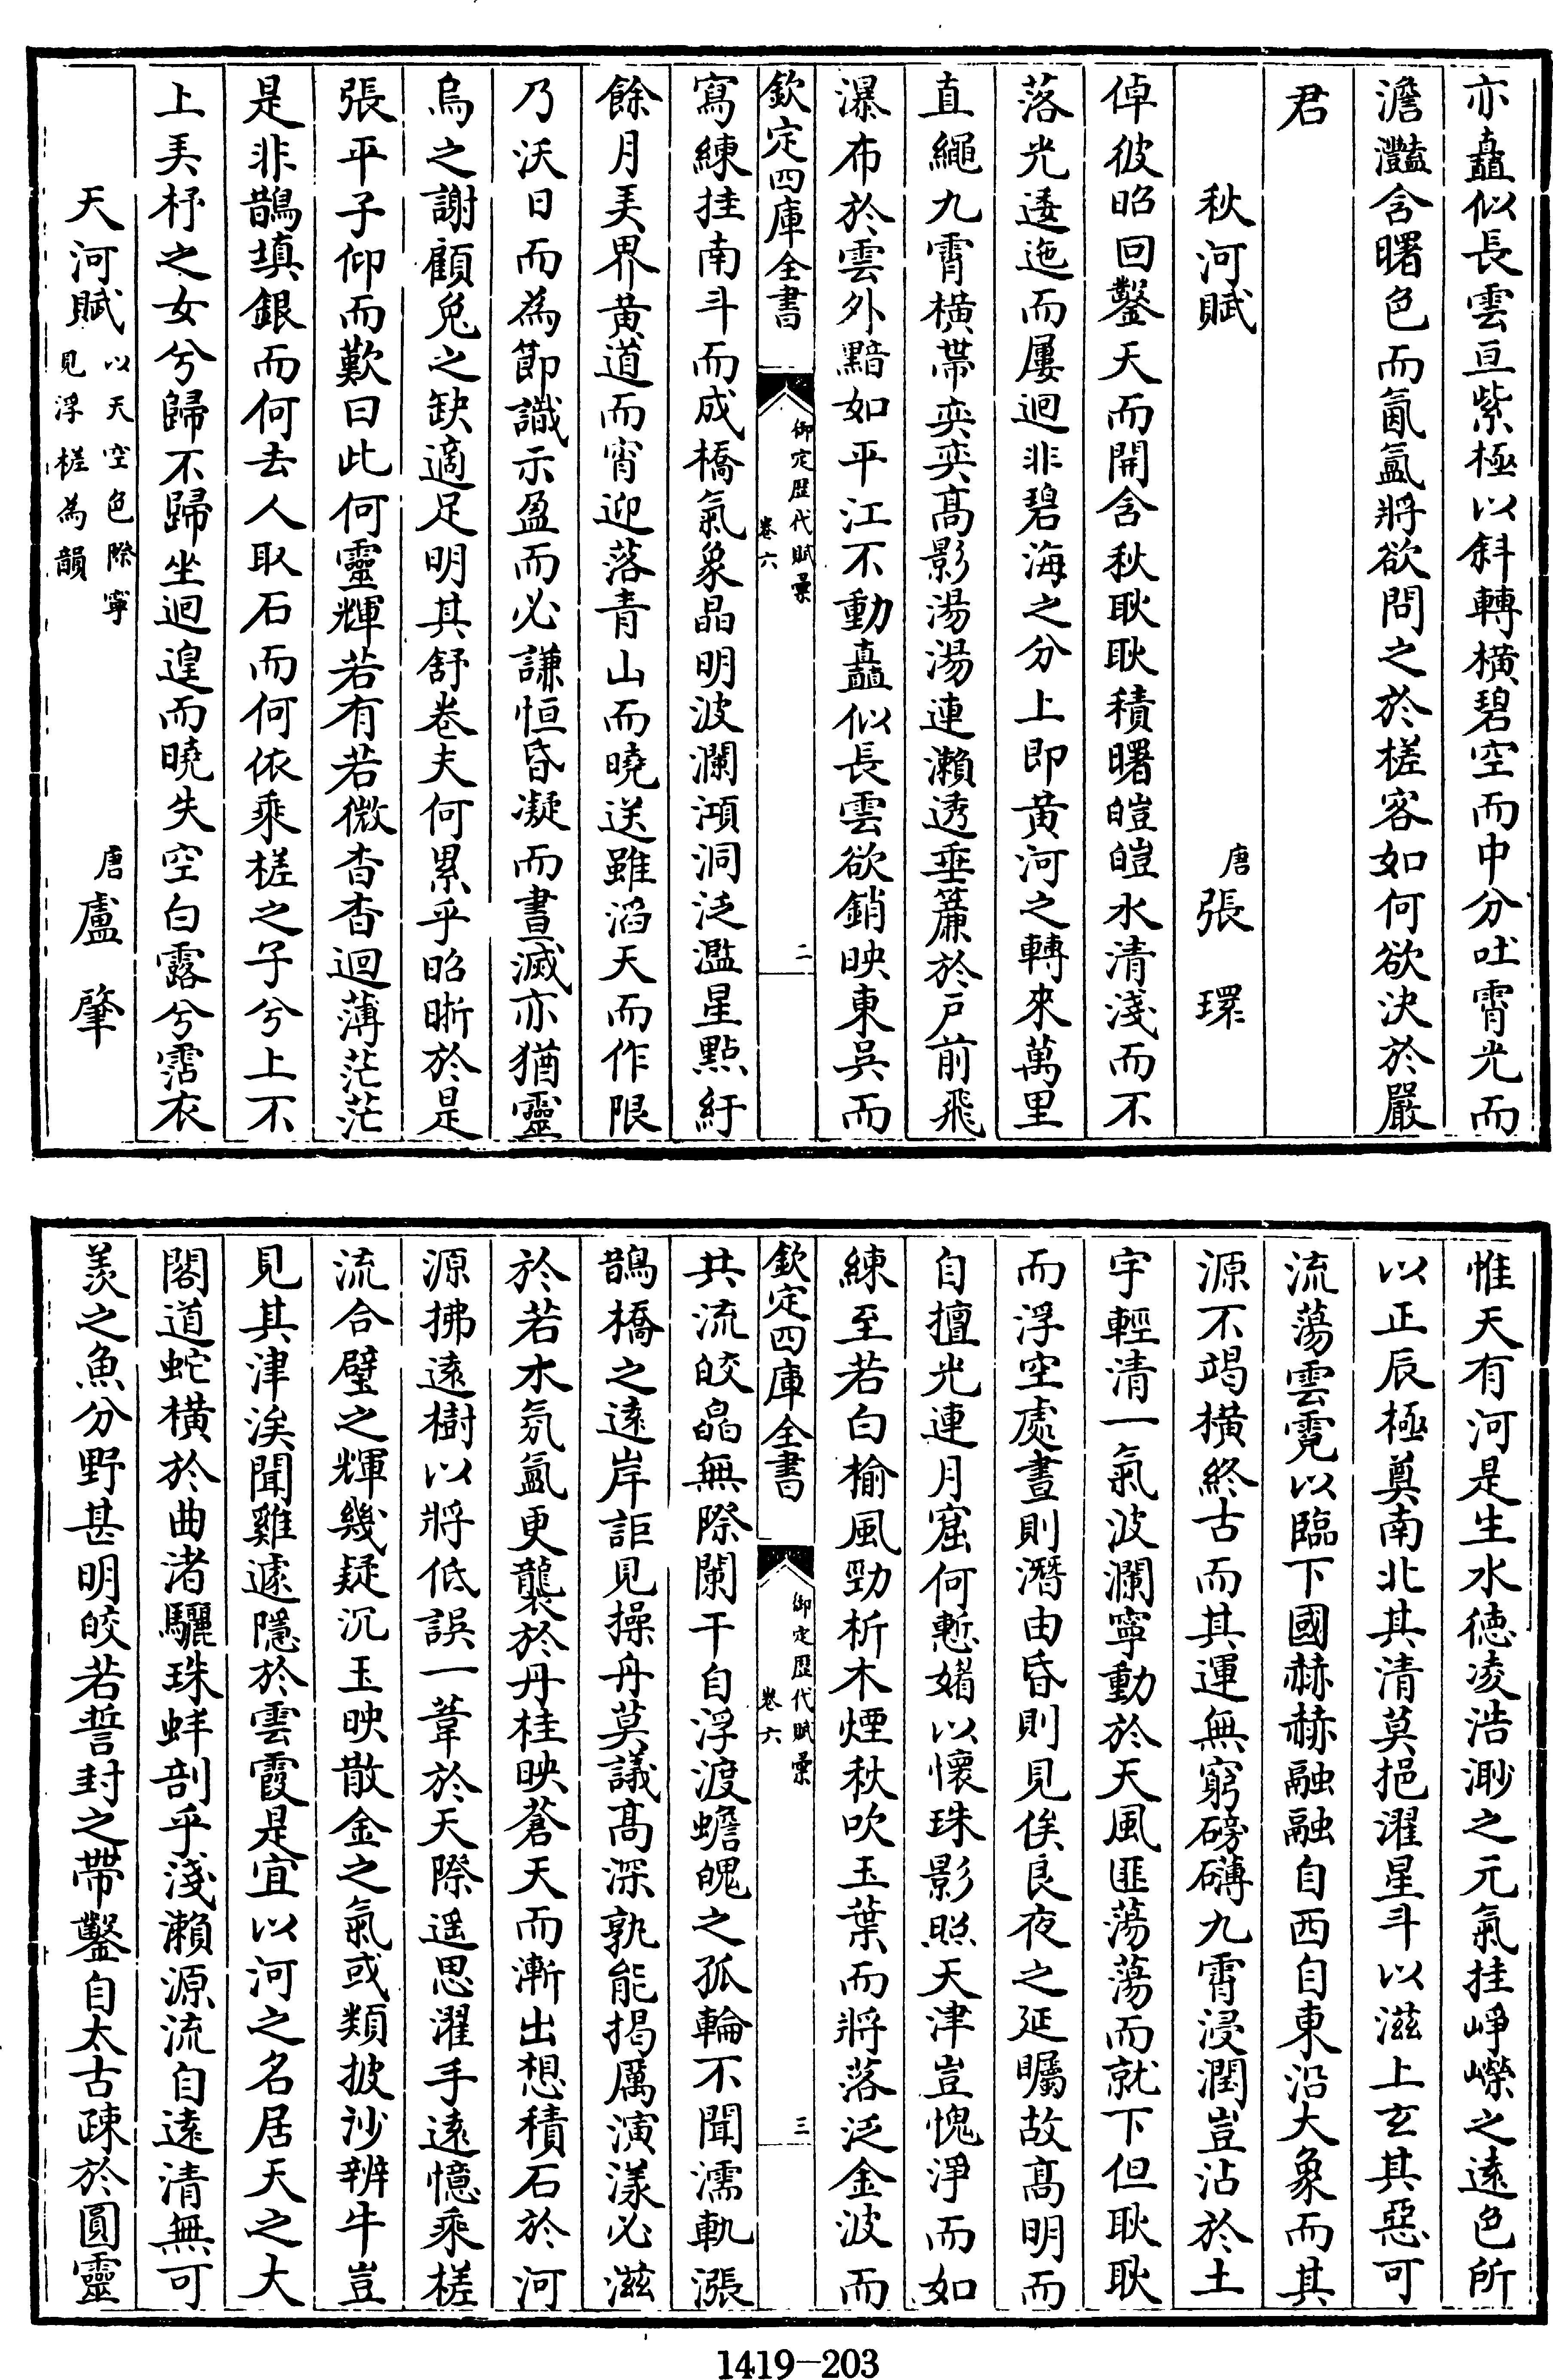 亦矗似長雲亘紫極以斜轉橫碧空而中分吐霄光而
澹灩含曙色而氤氳將欲問之於槎客如何欲決於嚴
君
秋河賦 唐張環
倬彼昭回鑿天而開含秋耿耿積曙皚皚水清淺而不
落光逶迤而屢迴非碧海之分上即黄河之轉來萬里
直繩九霄橫帶奕奕高影湯湯連瀨透垂簾於戸前飛
瀑布於雲外黯如平江不動矗似長雲欲銷映東吳而
欽定四庫全書 御定歷代賦彙 卷六 二
寫練挂南斗而成橋氣象晶明波瀾澒洞泛濫星點紆
餘月美界黄道而宵迎落青山而曉送雖滔天而作限
乃沃日而為節識示盈而必謙恒昏凝而晝滅亦猶靈
烏之謝顧兔之缺適足明其舒卷夫何累乎昭晣於是
張平子仰而歎曰此何靈輝若有若微杳杳迴薄茫茫
是非鵲填銀而何去人取石而何依乘槎之子兮上不
上美杼之女兮歸不歸坐迴遑而曉失空白露兮霑衣
天河賦 以天空色際寧見浮槎為韻 唐盧肇
惟天有河是生水徳凌浩渺之元氣挂崢嶸之遠色所
以正辰極奠南北其清莫挹濯星斗以滋上玄其惡可
流蕩雲霓以臨下國赫赫融融自西自東沿大象而其
源不竭橫終古而其運無窮磅礴九霄浸潤豈沾於土
宇輕清一氣波瀾寧動於天風匪蕩蕩而就下但耿耿
而浮空處晝則潛由昏則見俟良夜之延矚故高明而
自擅光連月窟何慙媚以懷珠影照天津豈愧淨而如
練至若白榆風勁析木煙秋吹玉葉而將落泛金波而
欽定四庫全書 御定歷代賦彙 卷六 三
共流皎皛無際闌干自浮渡蟾魄之孤輪不聞濡軌漲
鵲橋之遠岸詎見操舟莫議高深孰能揭厲演漾必滋
於若水氛氳更襲於丹桂映蒼天而漸出想積石於河
源拂遠樹以將低誤一葦於天際遥思濯手遠憶乘槎
流合璧之輝幾疑沉玉映散金之氣或類披沙辨牛豈
見其津涘聞雞遽隱於雲霞是宜以河之名居天之大
閣道蛇橫於曲渚驪珠蚌剖乎淺瀨源流自遠清無可
羨之魚分野甚明皎若誓封之帶鑿自太古疎於圓靈
1419-203